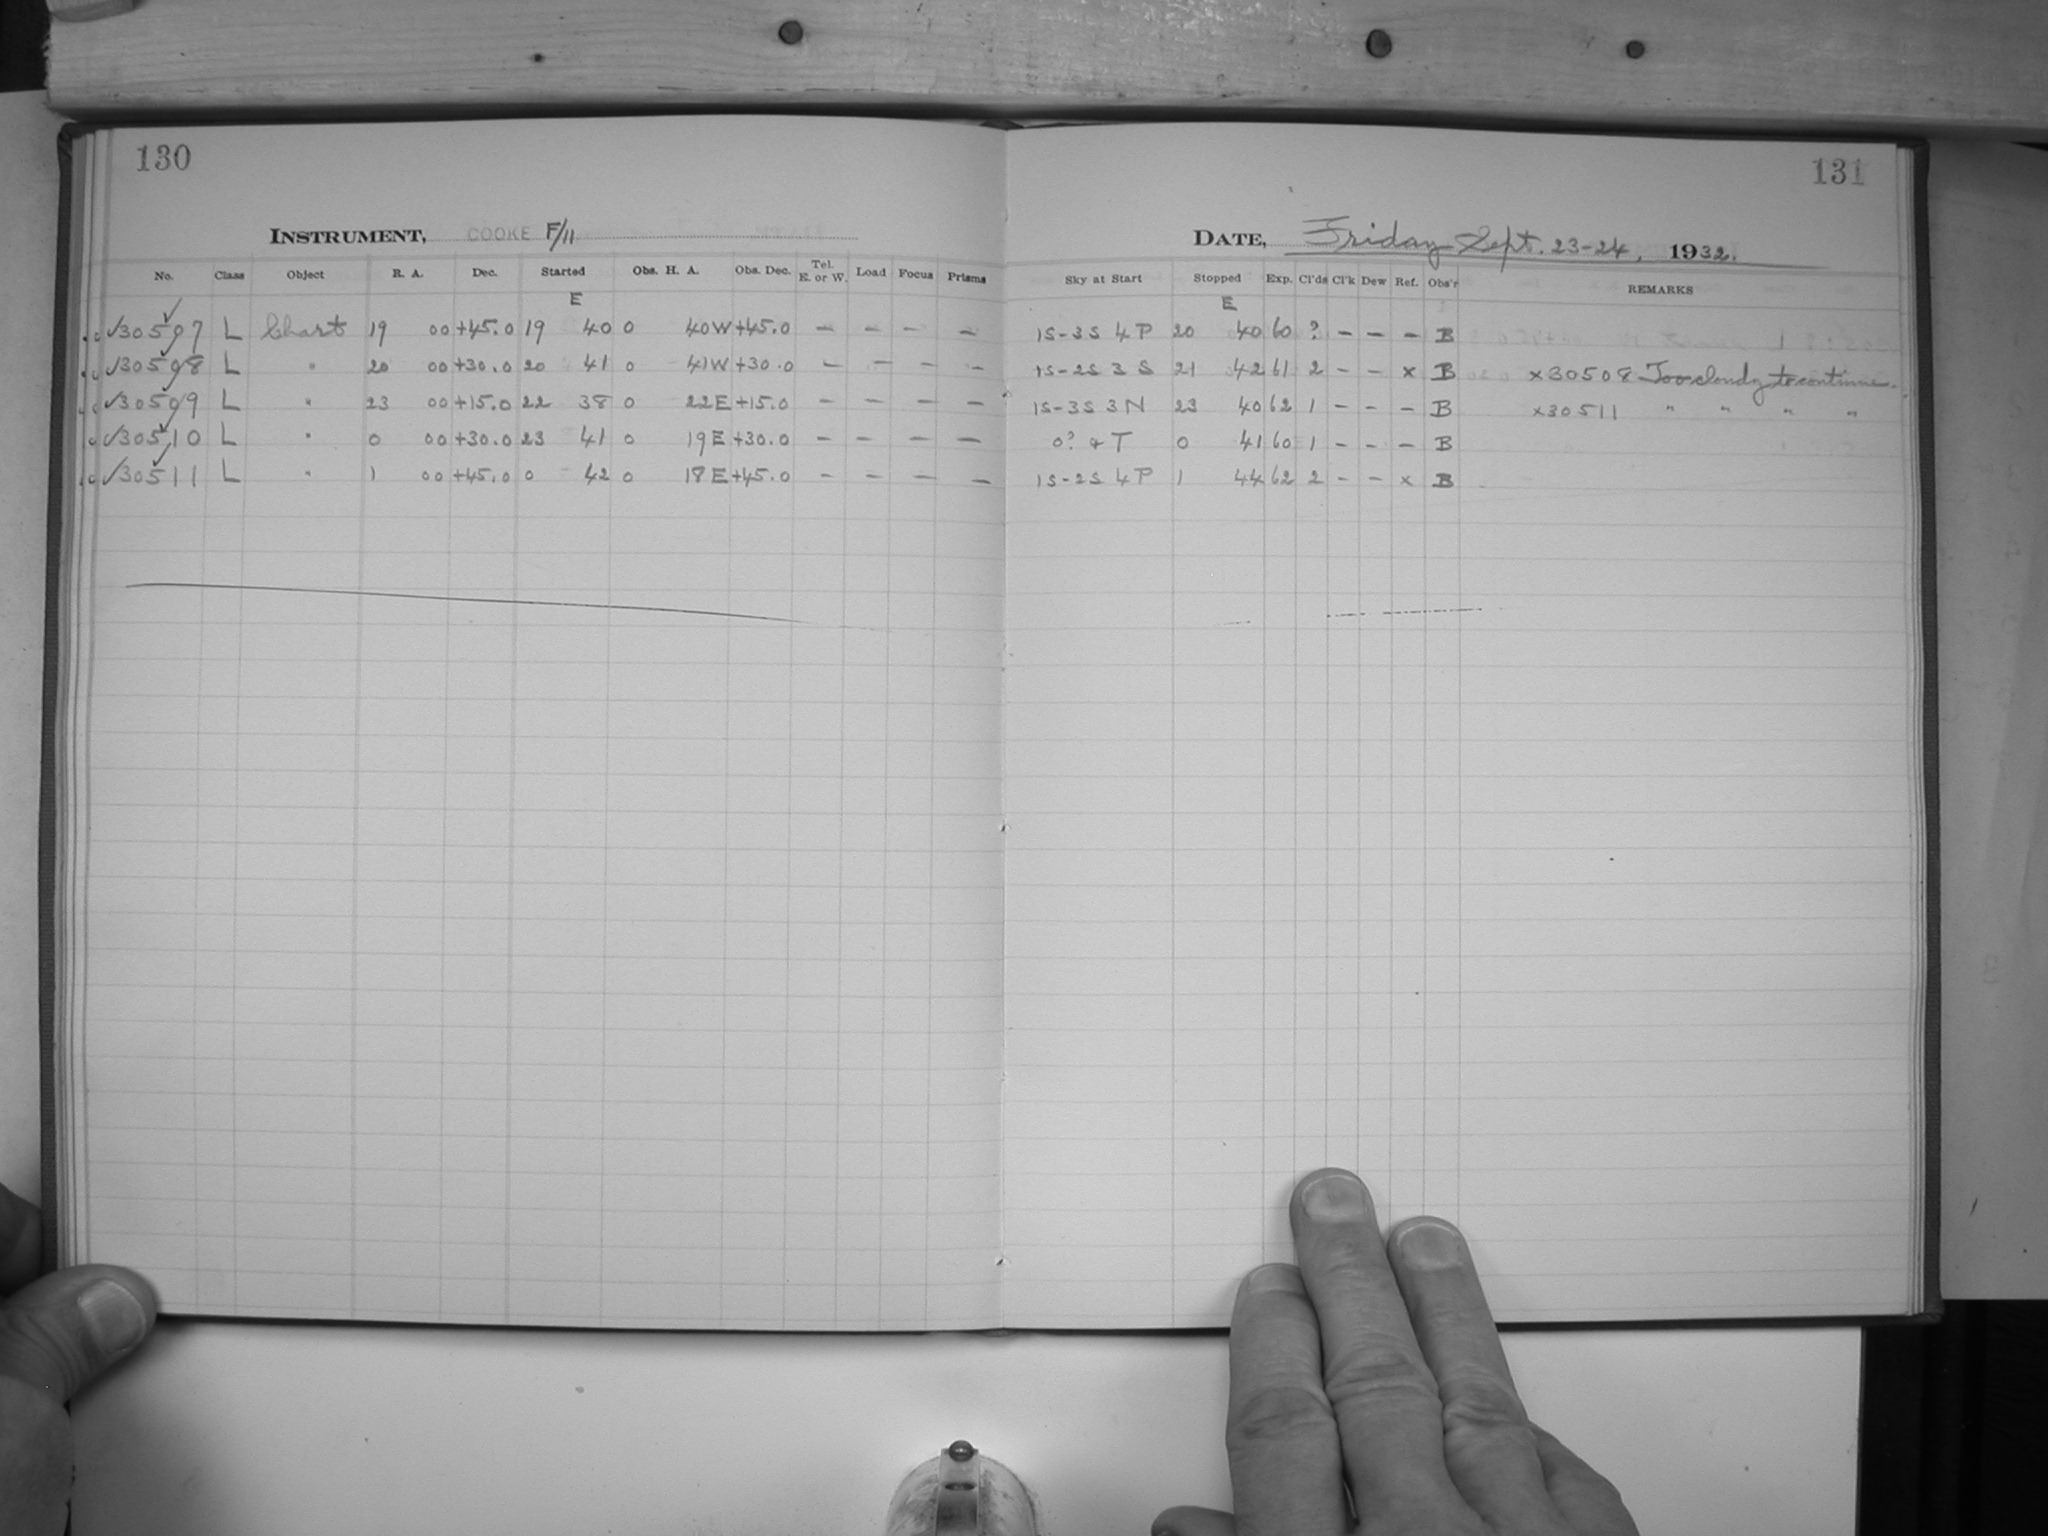 130
INSTRUMENT, COOKE F/11
No. Class Object R. A. Dec. Started Obs. H. A. Obs. Dec. Tel. E. or W. Load Focus Prisms
E
✓30507 L Chart 19 00 +45.0 19 40 0 40W +45.0 — — — —
✓30508 L " 20 00 +30.0 20 41 0 41W +30.0 — — — —
✓30509 L " 23 00 +15.0 22 38 0 22E +15.0 — — — —
✓30510 L " 0 00 +30.0 23 41 0 19E +30.0 — — — —
✓30511 L " 1 00 +45.0 0 42 0 18E +45.0 — — — —
131
DATE, Friday Sept. 23-24, 1932.
Sky at Start Stopped Exp. Cl'ds Cl'k Dew Ref. Obs'r REMARKS
E
1S-3S 4 P 20 40 60 ? — — — B
1S-2S 3 S 21 42 61 2 — — x B x30508 Too cloudy to continue.
1S-3S 3 N 23 40 62 1 — — — B x30511 " " " "
0? & T 0 41 60 1 — — — B
1S-2S 4 P 1 44 62 2 — — x B